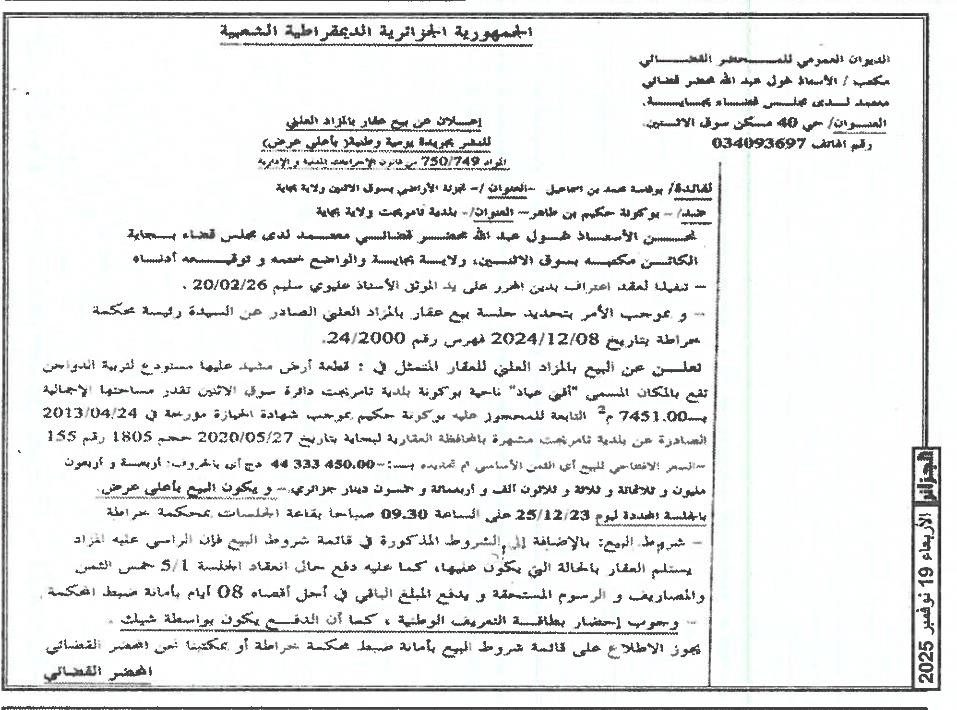 الجمهورية الجزائرية الديمقراطية الشعبية
الديوان العمومي للمحضر القضائي
مكتب / الأستاذ شمول عبد الله محضر قضائي
معتمد لدى مجلس قضاء بجاية.
العنوان/ حي 40 مسكن سوق الاثنين.
رقم الهاتف 034093697
إعلان عن بيع عقار بالمزاد العلني
للنشر بجريدة يومية وطنية( بأعلى عرض)
المواد 750/749 من قانون الإجراءات المدنية و الإدارية
لفائدة/ بوقاسة محمد بن اسماعيل -العنوان /- تجزئة الأراضي بسوق الاثنين ولاية بجاية
ضد/- بوكونة حكيم بن طاهر- العنوان/- بلدية تامريجت ولاية بجاية
نحن الأستاذ شمول عبد الله محضر قضائي معتمد لدى مجلس قضاء بجاية
الكائن مكتبه بسوق الاثنين، ولاية بجاية والواضع ختمه و توقيعه أدناه
- تنفيذا لعقد اعتراف بدين المحرر على يد الموثق الأستاذ عليوي سليم 20/02/26 .
- و بموجب الأمر بتحديد جلسة بيع عقار بالمزاد العلني الصادر عن السيدة رئيسة محكمة
خراطة بتاريخ 2024/12/08 فهرس رقم 24/2000.
نعلن عن البيع بالمزاد العلني للعقار المتمثل في : قطعة أرض مشيد عليها مستودع لتربية الدواجن
تقع بالمكان المسمى "أقني عياد" ناحية بوكونة بلدية تامريجت دائرة سوق الاثنين تقدر مساحتها الإجمالية
بـ7451.00 م² التابعة للمحجوز عليه بوكونة حكيم بموجب شهادة الحيازة مؤرخة في 2013/04/24
الصادرة عن بلدية تامريجت مشهرة بالمحافظة العقارية لبجاية بتاريخ 2020/05/27 حجم 1805 رقم 155
-السعر الافتتاحي للبيع أي الثمن الأساسي تم تحديده بـ:-44 333 450.00 دج أي بالحروف: أربعة و أربعون
مليون و ثلاثمائة و ثلاثة و ثلاثون ألف و أربعمائة و خمسون دينار جزائري.- و يكون البيع بأعلى عرض.
بالجلسة المحددة ليوم 25/12/23 على الساعة 09.30 صباحا بقاعة الجلسات بمحكمة خراطة
- شروط البيع: بالإضافة إلى الشروط المذكورة في قائمة شروط البيع فإن الراسي عليه المزاد
يستلم العقار بالحالة التي يكون عليها، كما عليه دفع حال انعقاد الجلسة 5/1 خمس الثمن
والمصاريف و الرسوم المستحقة و يدفع المبلغ الباقي في أجل أقصاه 08 أيام بأمانة ضبط المحكمة
- وجوب إحضار بطاقة التعريف الوطنية ، كما أن الدفع يكون بواسطة شيك .
يجوز الاطلاع على قائمة شروط البيع بأمانة ضبط محكمة خراطة أو بمكتبنا نحن المحضر القضائي
المحضر القضائي
الجزائر
الأربعاء 19 نوفمبر 2025